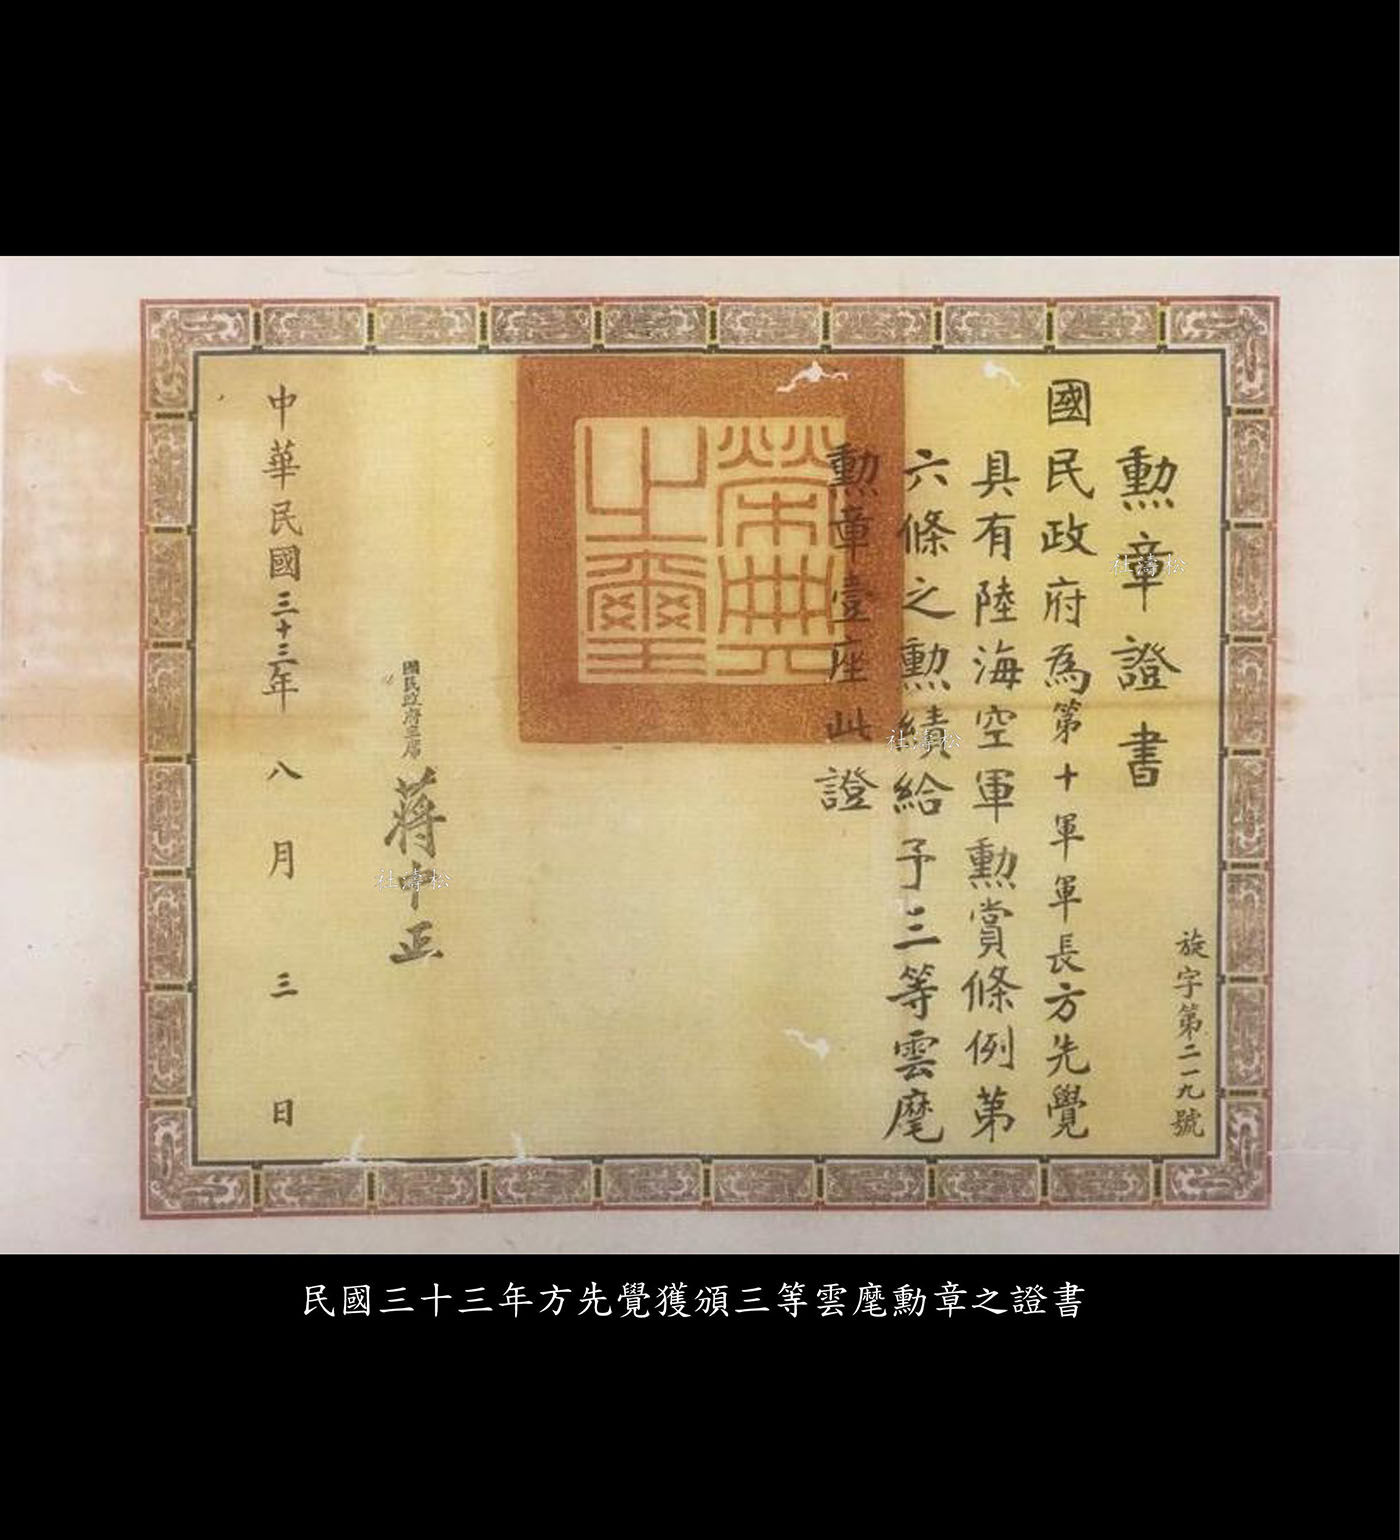 勲章證書
旋字第二一九號
國民政府為第十軍軍長方先覺
具有陸海空軍勲賞條例第
六條之勲績給予三等雲麾
勲章壹座此證
榮典之璽
國民政府主席
蔣中正
中華民國三十三年八月三日
社濤松
社濤松
社濤松
民國三十三年方先覺獲頒三等雲麾勳章之證書